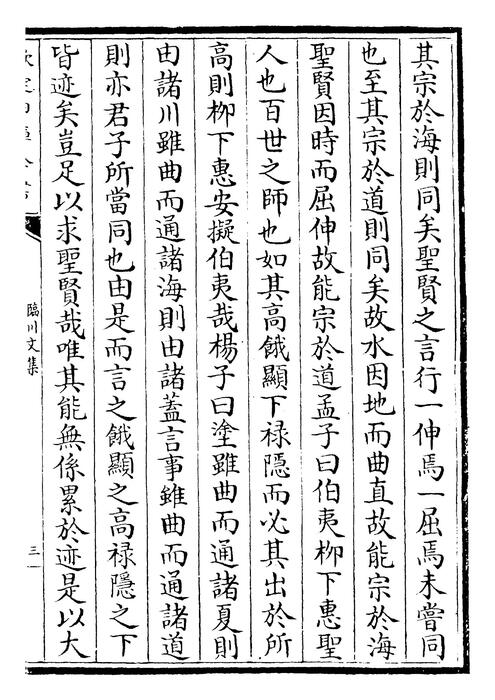 其宗於海則同矣聖賢之言行一伸焉一屈焉未嘗同
也至其宗於道則同矣故水因地而曲直故能宗於海
聖賢因時而屈伸故能宗於道孟子曰伯夷柳下惠聖
人也百世之師也如其高餓顯下禄隠而必其出於所
高則柳下惠安擬伯夷哉楊子曰塗雖曲而通諸夏則
由諸川雖曲而通諸海則由諸蓋言事雖曲而通諸道
則亦君子所當同也由是而言之餓顯之高禄隱之下
皆迹矣豈足以求聖賢哉唯其能無係累於迹是以大
臨川文集
三